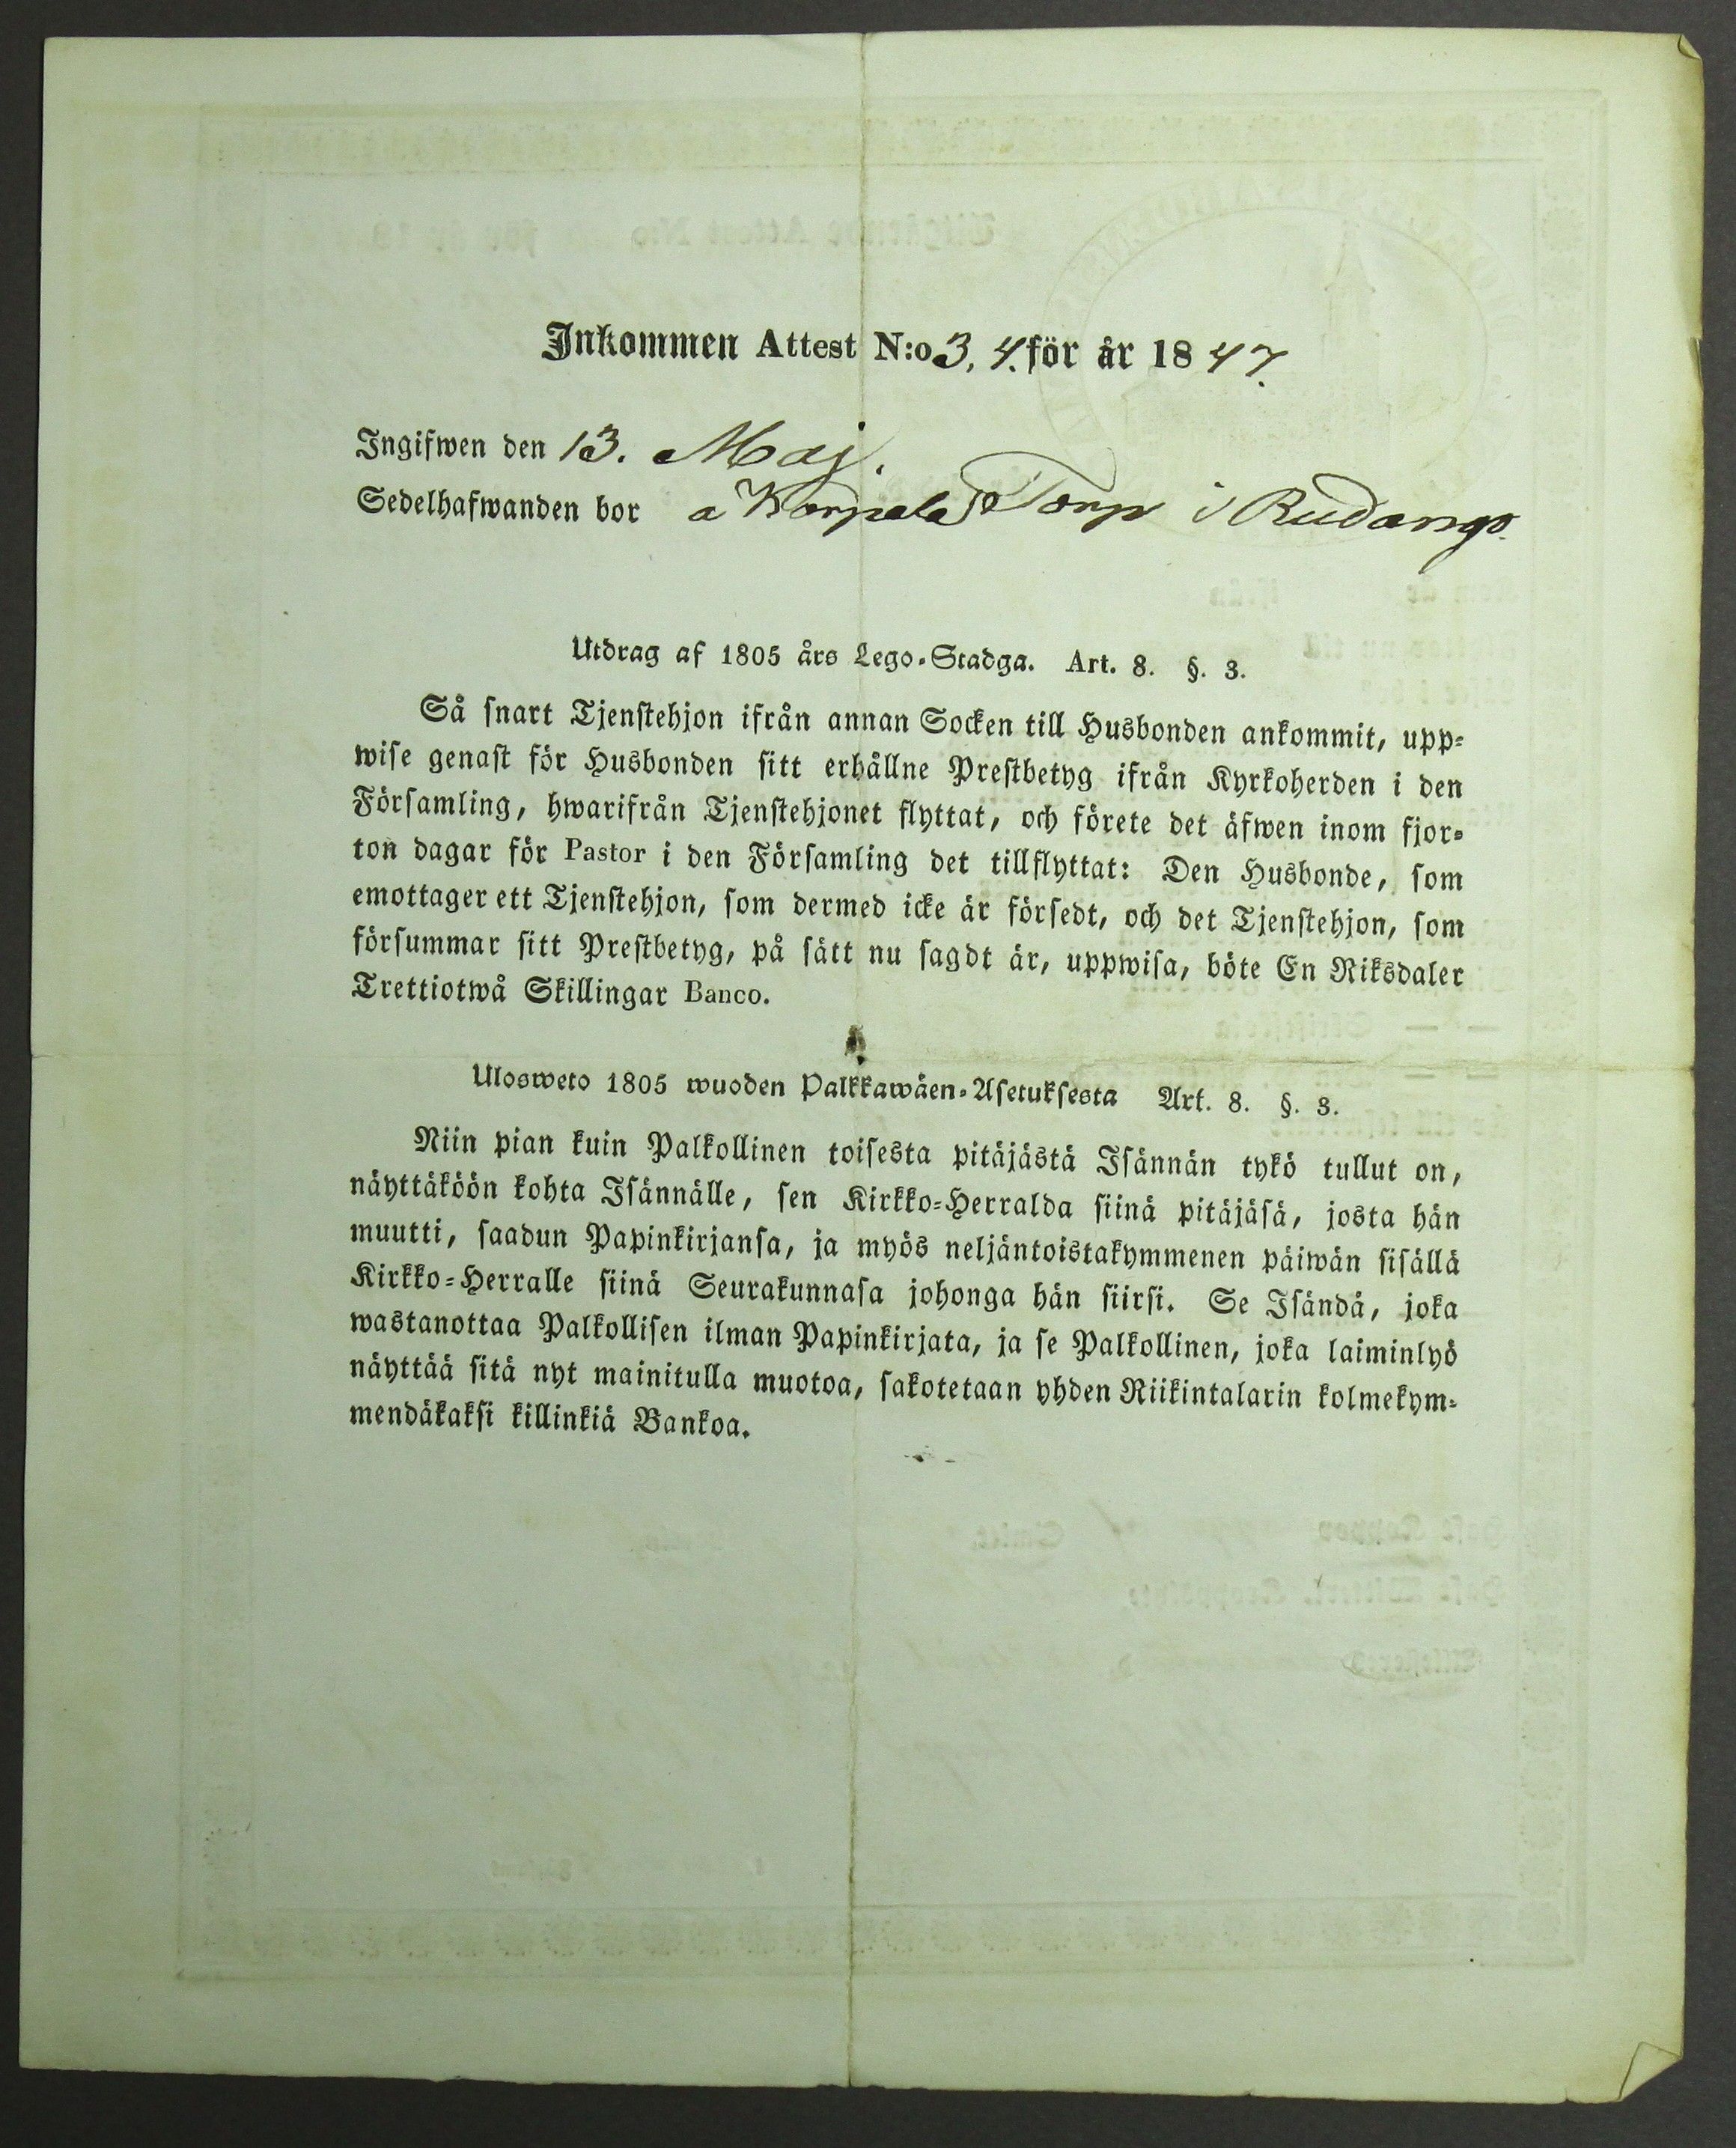 Inkommen Attest N:o 3. 4. för år 1847.
Ingifwen den 13. Maj.
Sedelhafwanden bor a Korpela Torp i Rudango.
Utdrag af 1805 års Lego-Stadga. Art. 8. §. 3.
Så snart Tjenstehjon ifrån annan Socken till Husbonden ankommit, upp-
wise genast för Husbonden sitt erhållne Prestbetyg ifrån Kyrkoherden i den
Församling, hwarifrån Tjenstehjonet flyttat, och förete det äfwen inom fjor-
ton dagar för Pastor i den Församling det tillflyttat: Den Husbonde, som
emottager ett Tjenstehjon, som dermed icke är försedt, och det Tjenstehjon, som
försummar sitt Prestbetyg, på sätt nu sagdt är, uppwisa, böte En Riksdaler
Trettiotwå Skillingar Banco.
Uloswеto 1805 wuoden Palkkawäen-Asetuksesta Art. 8. §. 3.
Niin pian kuin Palkollinen toisesta pitäjästä Isännän tykö tullut on,
näyttäköön kohta Isännälle, sen Kirkko-Herralda siinä pitäjäsä, josta hän
muutti, saadun Papinkirjansa, ja myös neljäntoistakymmenen päiwän sisällä
Kirkko-Herralle siinä Seurakunnasa johonga hän siirsi. Se Isändä, joka
wastanottaa Palkollisen ilman Papinkirjata, ja se Palkollinen, joka laiminlyö
näyttää sitä nyt mainitulla muotoa, sakotetaan yhden Riikintalarin kolmekym-
mendäkaksi killinkiä Bankoa.